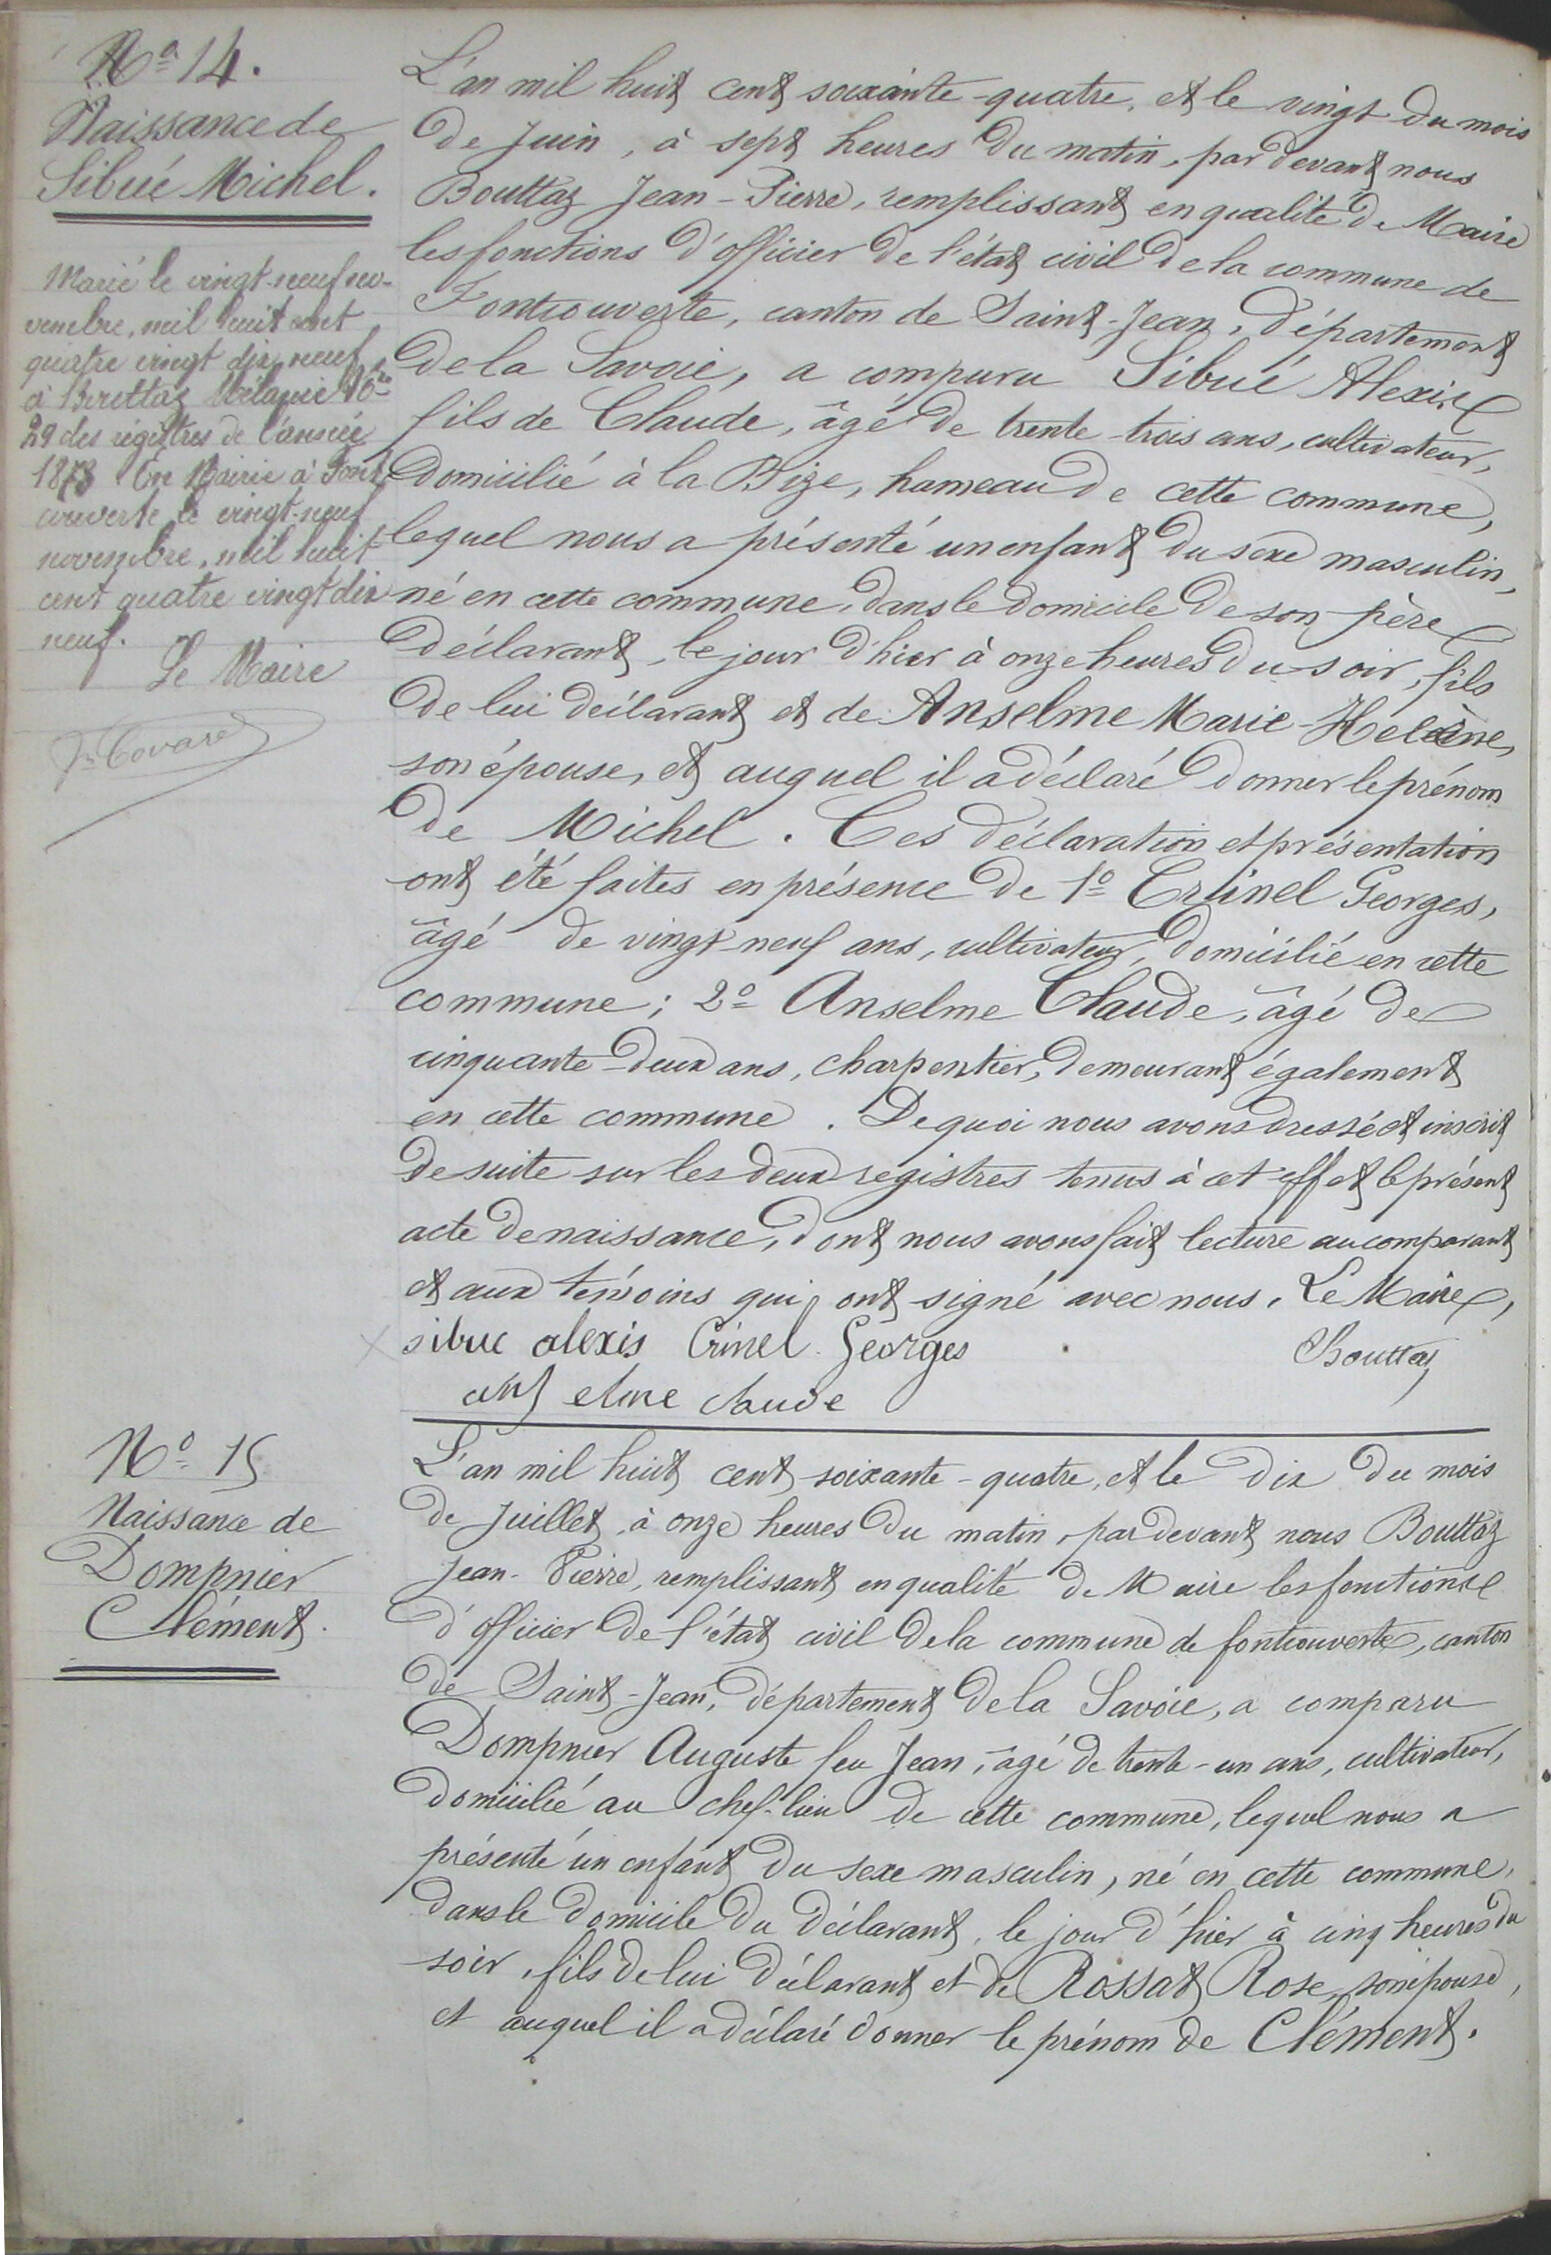 No 14.
Naissance de
Sibué Michel.
Marié le vingt-neuf no-
vembre, mil huit cent
quatre vingt dix neuf
à Mélanie No
29 des régistres de l'année
187 En Mairie à Font
couverte le vingt-neuf
novembre, mil huit
cent quatre vingt dix
neuf.
Le Maire
L'an mil huit cent soixante-quatre, et le vingt du mois
de Juin, à sept heures du matin, par devant nous
Bouttaz Jean-Pierre, remplissant en qualité de Maire
les fonctions d'officier de l'état civil de la commune de
Fontcouverte, canton de Saint-Jean, département
de la Savoie, a comparu Sibué Alexis
fils de Claude, âgé de trente-trois ans, cultivateur,
domicilié à la Bize, hameau de cette commune,
lequel nous a présenté un enfant du sexe masculin,
né en cette commune, dans le domicile de son père
déclarant, le jour d'hier à onze heures du soir, fils
de lui déclarant et de Anselme Marie-Helène,
son épouse, et auquel il a déclaré donner le prénom
de Michel. Ces déclaration et présentation
ont été faites en présence de 1o Crinel Georges,
âgé de vingt-neuf ans, cultivateur, domicilié en cette
commune; 2o Anselme Claude, âgé de
cinquante-deux ans, charpentier, demeurant également
en cette commune. De quoi nous avons dressé et inscrit
de suite sur les deux registres tenus à cet effet le présent
acte de naissance, dont nous avons fait lecture au comparant
et aux témoins qui ont signé avec nous. Le Maire,
sibue alexis Crinel Georges Bouttaz
anselme claude
No 15
Naissance de
Dompnier
Clément.
L'an mil huit cent soixante-quatre, et le dix du mois
de Juillet, à onze heures du matin, par devant nous Bouttaz
Jean-Pierre, remplissant en qualité de Maire les fonctions
d'officier de l'état civil de la commune de fontcouverte, canton
de Saint-Jean, département de la Savoie, a comparu
Dompnier Auguste feu Jean, âgé de trente-un ans, cultivateur,
domicilié au chef-lieu de cette commune, lequel nous a
présenté un enfant du sexe masculin, né en cette commune,
dans le domicile du déclarant, le jour d'hier à cinq heures du
soir, fils de lui déclarant et de Rossat Rose, son épouse,
et auquel il a déclaré donner le prénom de Clément.